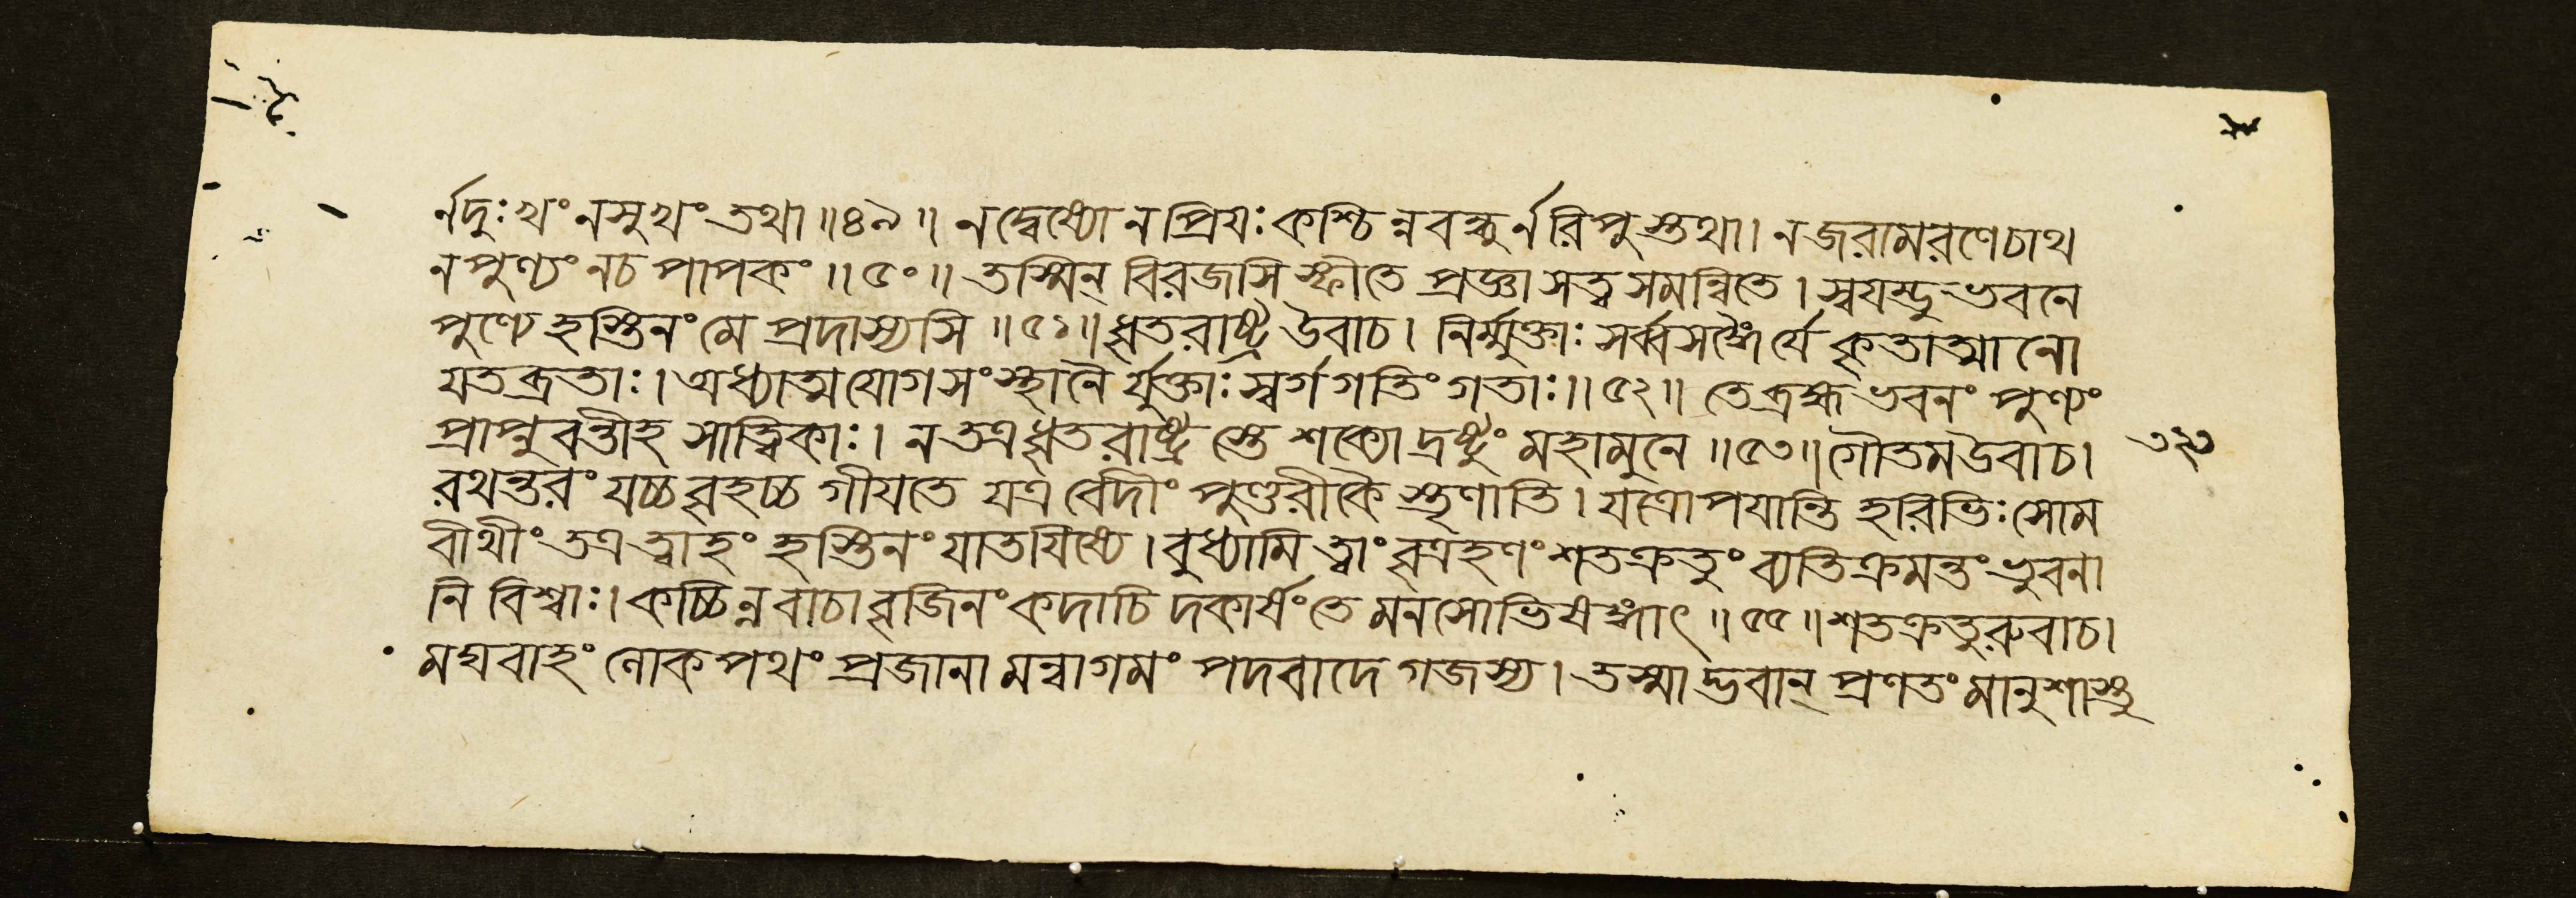 র্নদুঃখং নসুখং তথা॥৪৯॥ নদ্বেষ্যো নপ্রিয়ঃ কশ্চিন্নবন্ধুর্নরিপুস্তথা। নজরামরণেচাথ
নপুণ্যং নচ পাপকং॥৫০॥ তস্মিন্ বিরজাসি স্ফীতে প্রজ্ঞাসত্ত্বসমন্বিতে। স্বয়ম্ভুভবনে
পুণ্যে হস্তিনং মে প্রদাস্যসি॥৫১॥ধৃতরাষ্ট্র উবাচ। নির্ম্মুক্তাঃ সর্ব্বসঙ্গৈর্যে কৃতাত্মানো
যতব্রতাঃ। অধ্যাত্মযোগসংস্থানৈর্যুক্তাঃ স্বর্গগতিং গতাঃ॥৫২॥ তে ব্রহ্মভবনং পুণ্যং
প্রাপ্নুবন্তীহ সাত্ত্বিকাঃ। নতত্রধৃতরাষ্ট্রস্তে শক্যোদ্রষ্টুং মহামুনে॥৫৩॥গৌতমউবাচ। ৩২৩
রথন্তরং যচ্চবৃহচ্চ গীয়তে যত্র বেদীং পুণ্ডরীকৈস্তৃণাতি। যত্রোপযান্তি হরিভিঃ সোম
বীথীং তত্রত্বাহং হস্তিনং যাতয়িষ্যে। বুধ্যামি ত্বাং বৃত্রহণং শতক্রতুং ব্যতিক্রমন্তং ভুবনা
নি বিশ্বাঃ। কচ্চিন্নবাচাবৃজিনং কদাচিদকার্ষং তে মনসোভিষঙ্গাৎ॥৫৫॥শতক্রতুরুবাচ।
মঘবাহং লোকপথং প্রজানামন্বাগমং পদবাদে গজস্য। তস্মাদ্ভবান্ প্রণতং মানুশাস্তু